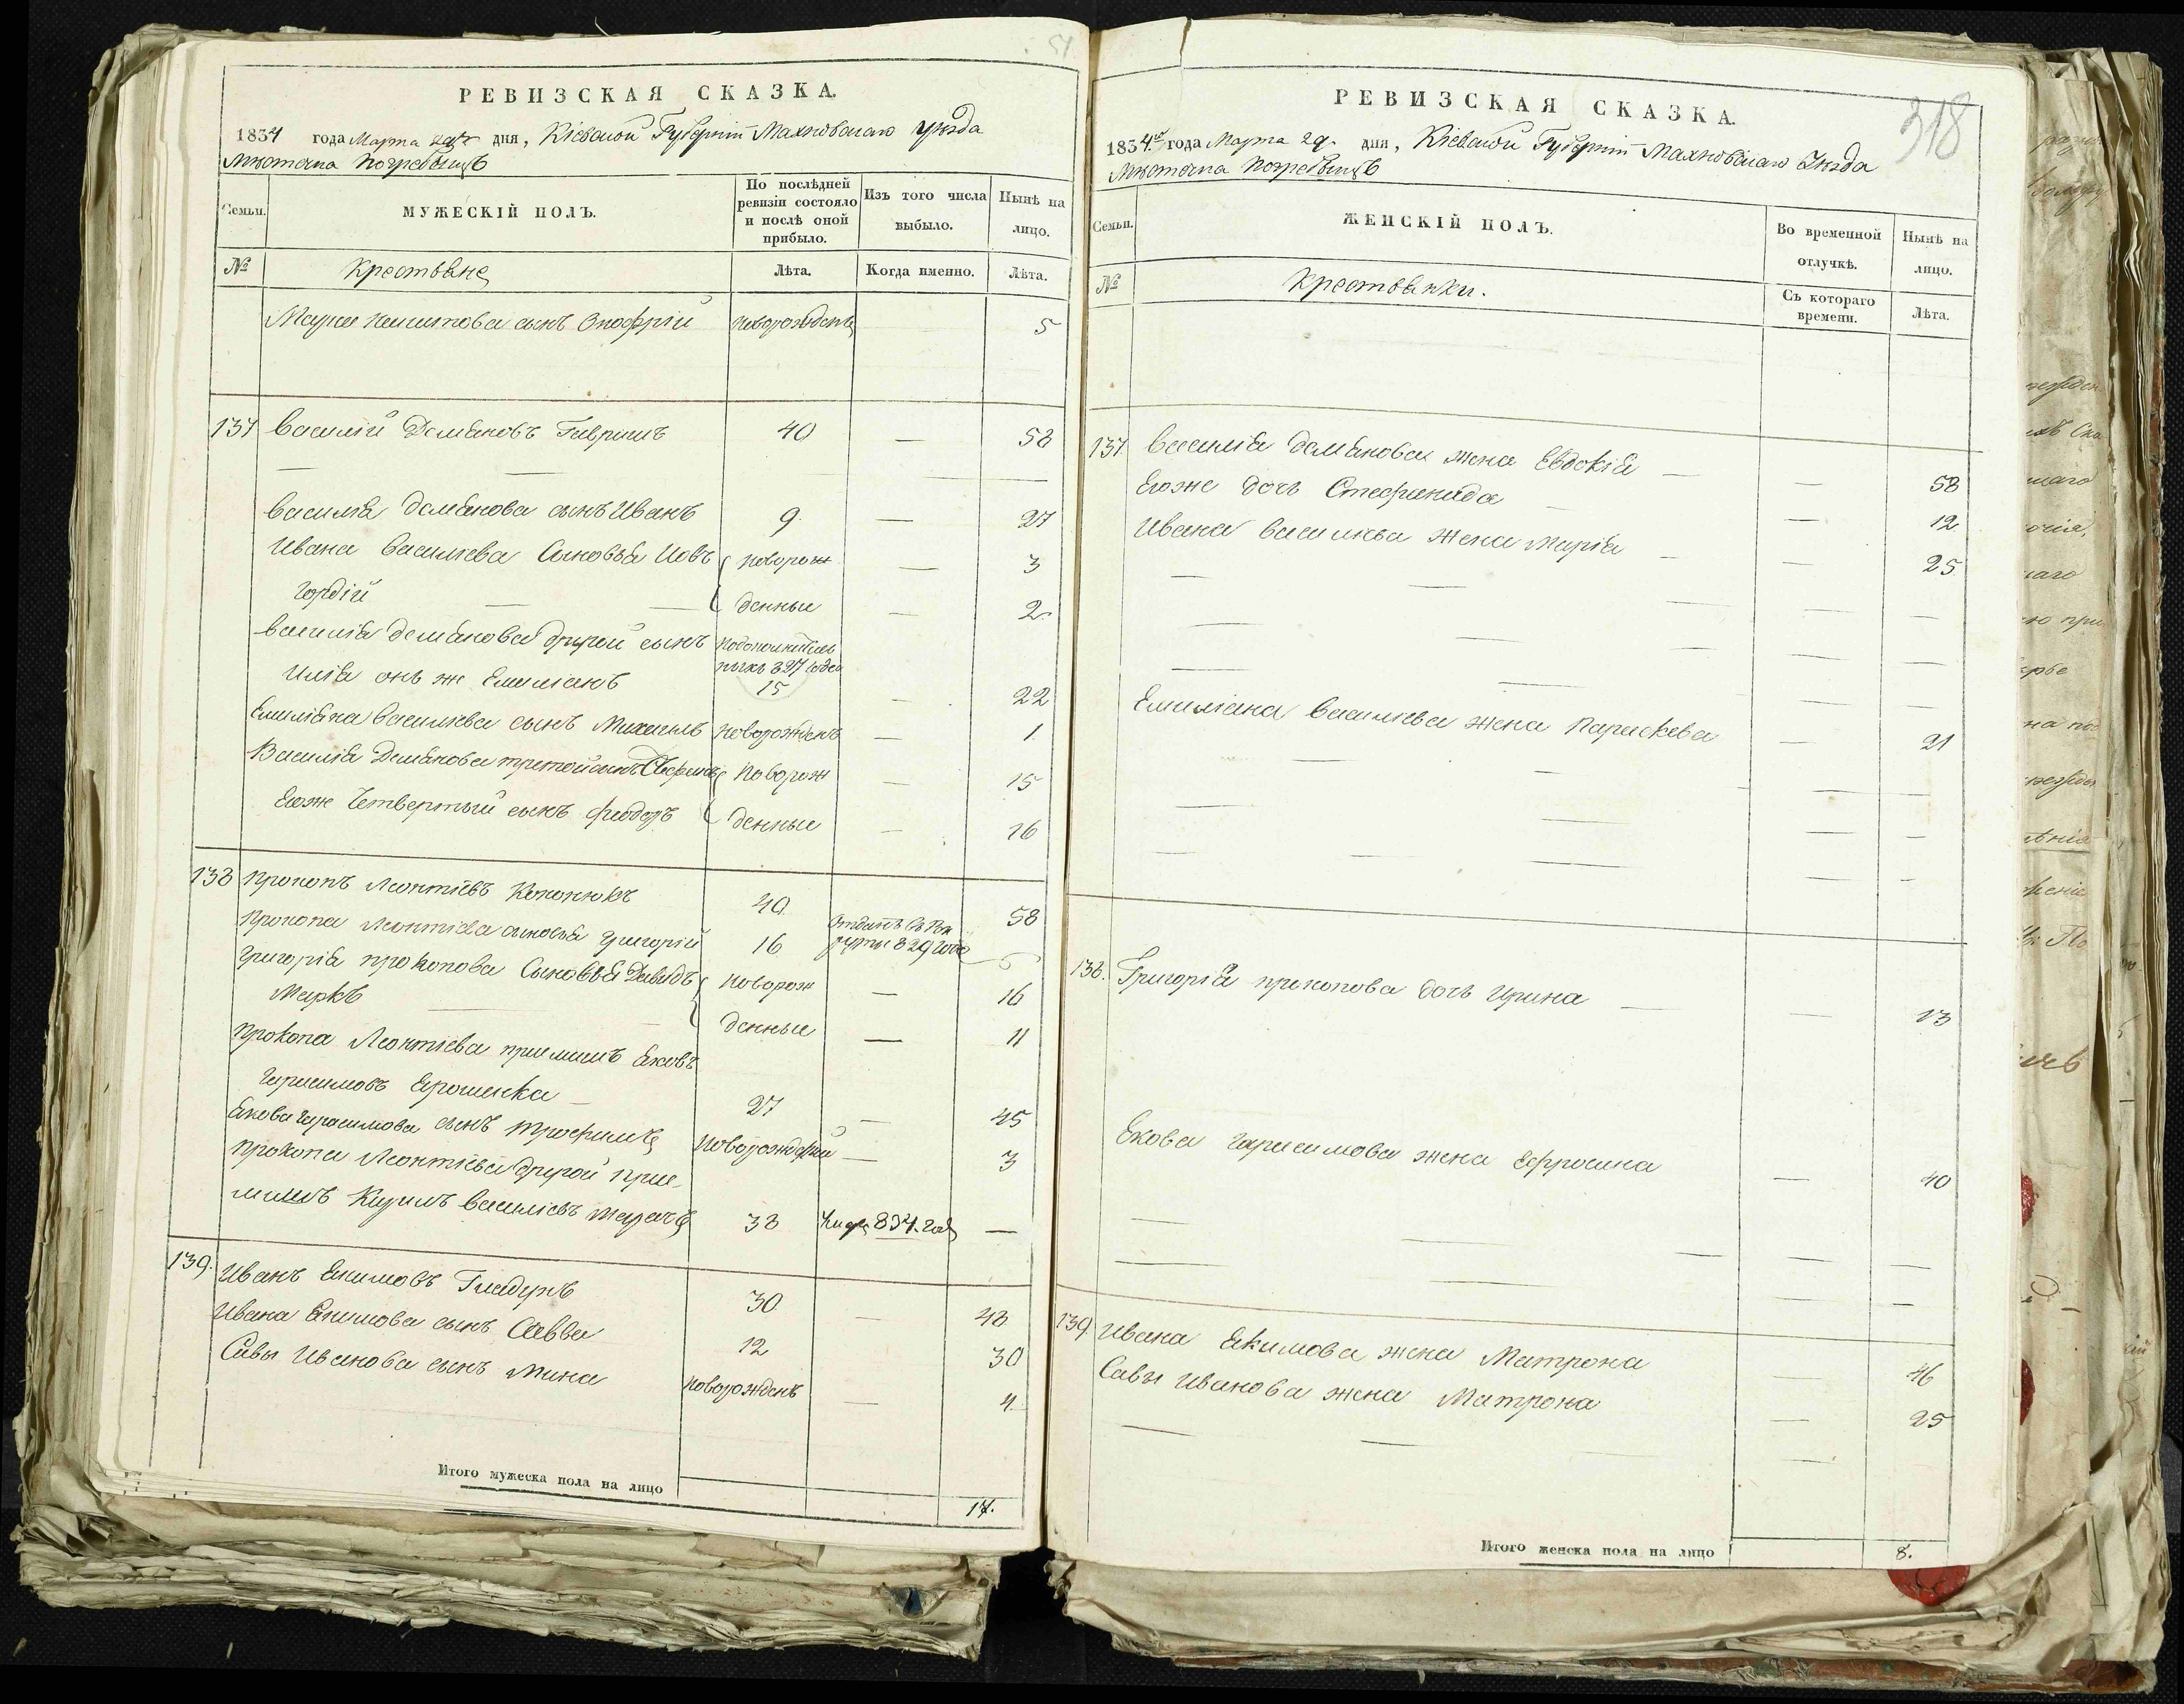 51
РЕВИЗСКАЯ СКАЗКА.
1834 года Марта дня, Кіевской Губерніи Махновскаго уѣзда
Мѣстечка Погребыщъ
Семьи.
МУЖЕСКІЙ ПОЛЪ.
По послѣдней ревизіи состояло и послѣ оной прибыло.
Изъ того числа выбыло.
Нынѣ на лицо.
№
Крестьяне
Лѣта.
Когда именно.
Лѣта.
сынъ Онофрій новорожденъ 5
137 Василій Демяновъ Гавришъ 40 — 58
Василія Демянова сынъ Иванъ 9. — 27
Ивана Василіева Сыновья Иовъ новорож — 3
Гордій — — денные — 2
Василія Демянова другой сынъ
Илія онъ же Емиліанъ 15 — 22
Емиліана Василіева сынъ Михаилъ новорожденъ — 1
Василія Демянова третой сынъ новорож — 15
Егоже Четвертый сынъ Феодоръ денные — 16
138 Прокопъ Леонтіевъ Кононюкъ 40 58
Прокопа Леонтіева сыновья Григорій 16 Отданъ въ Рекруты 829 года
Григорія Прокопова Сыновья Давидъ новорож — 16
Марко — денные — 11
Прокопа Леонтіева приймишъ Яковъ
Герасимовъ Ярошенко 27 — 45
Якова Герасимова сынъ Трофимъ Новорожденый — 3
Прокопа Леонтіева другой прий-
мишъ Кирилъ Василіевъ 33 834. года —
139. Иванъ Якимовъ Гладунъ 30 — 48
Ивана Якимова сынъ Савва 12 30
Савы Иванова сынъ Мина новорожденъ — 4.
Итого мужеска пола на лицо 17.
318
РЕВИЗСКАЯ СКАЗКА.
1834. года Марта 29. дня, Кіевской Губерніи Махновскаго Уѣзда
Мѣстечка Погребыщъ
Семьи.
ЖЕНСКІЙ ПОЛЪ.
Во временной отлучкѣ.
Нынѣ на лицо.
№
Крестьянки.
Съ котораго времени.
Лѣта.
137. Василія Демянова жена Евдокія — — 58
Егоже дочь Стефанида — — 12
Ивана Василіева жена Марія — — 25
Емиліана Василіева жена Параскева — 21
138. Григорія Прокопова дочь Ирина — — 13
Якова Герасимова жена Ефросина — 40
139 Ивана Якимова жена Матрона — 46
Савы Иванова жена Матрона — 25
Итого женска пола на лицо 8.